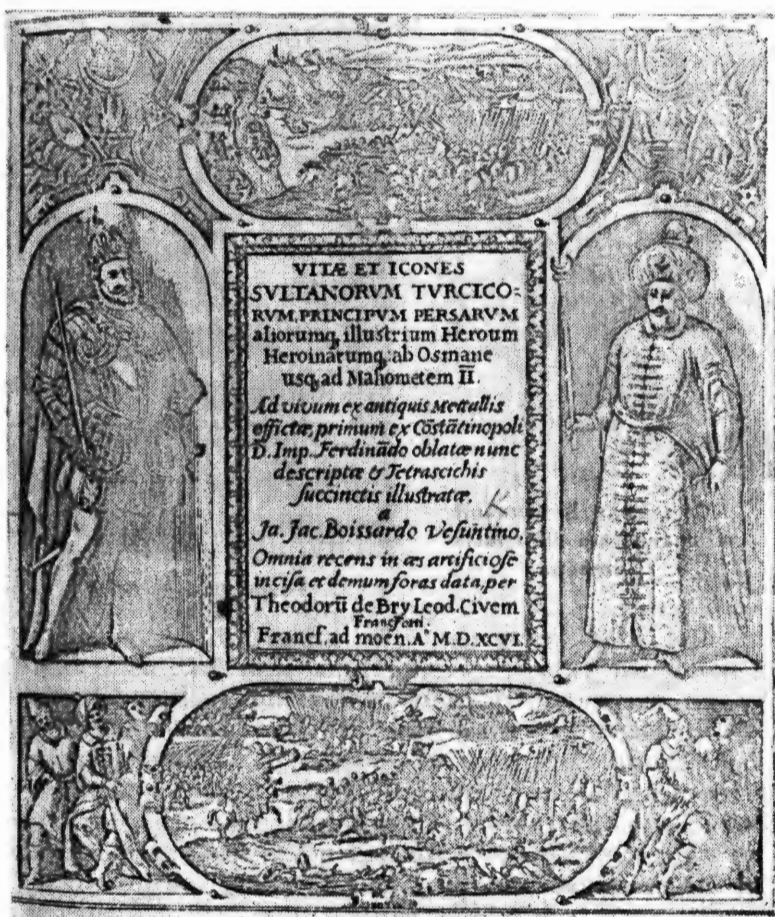 VITÆ ET ICONES
SVLTANORVM TVRCICO-
RVM, PRINCIPVM PERSARVM
aliorumq, illustrium Heroum
Heroinarumq; ab Osmane
usq, ad Mahometem II.
Ad vivum ex antiquis Metallis
effictæ, primum ex Cõstãtinopoli
D. Imp. Ferdinãdo oblatæ nunc
descriptæ & Tetrascichis
succinctis illustratæ.
a
Ja. Jac. Boissardo Vesuntino.
Omnia recens in æs artificiose
incisa et demum foras data, per
Theodorũ de Bry Leod. Civem
Francforti.
Francf. ad moen. Aº M.D.XCVI.